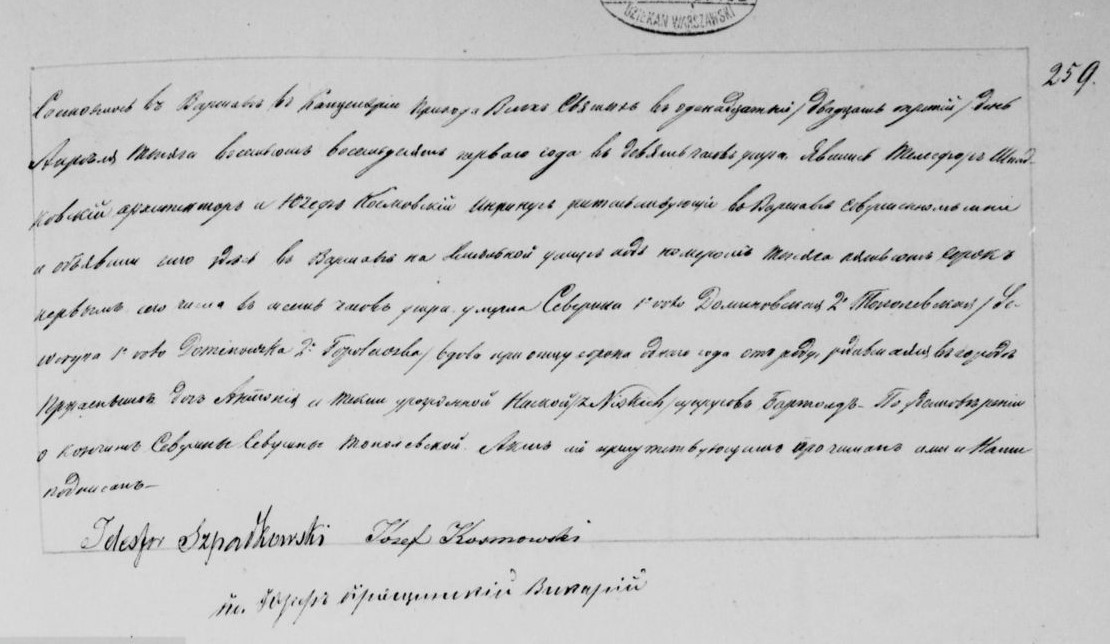 DZIEKAN WARSZAWSKI
259.
Состоялось въ Варшавѣ въ Канцеляріи прихода Всѣхъ Святыхъ въ одинадцатый / двадцать третій / день
Апрѣля тысяча восемьсотъ восемьдесятъ перваго года въ девять часовъ утра. Явились Телесфоръ Шпад-
ковскій архитекторъ и Юзефъ Космовскій жительствующіе въ Варшавѣ совершеннолѣтніе
и объявили что въ Варшавѣ на улицѣ подъ номеромъ тысяча пятьсотъ сорокъ
первымъ сего числа въ часовъ утра умерла Северина 1º voto Доминовская 2º / Се-
1º voto Dominowska 2º / вдова сорока одного года отъ роду, родившаяся въ городѣ
Праснышѣ дочь Антонія и урожденной / z Nieskich / супруговъ Бартольдъ. По удостовѣреніи
о кончинѣ Северины Северины Тополевской. Актъ сей присутствующимъ прочитанъ ими и Нами
подписанъ.—
Telesfor Szpadkowski Józef Kosmowski
Викарій